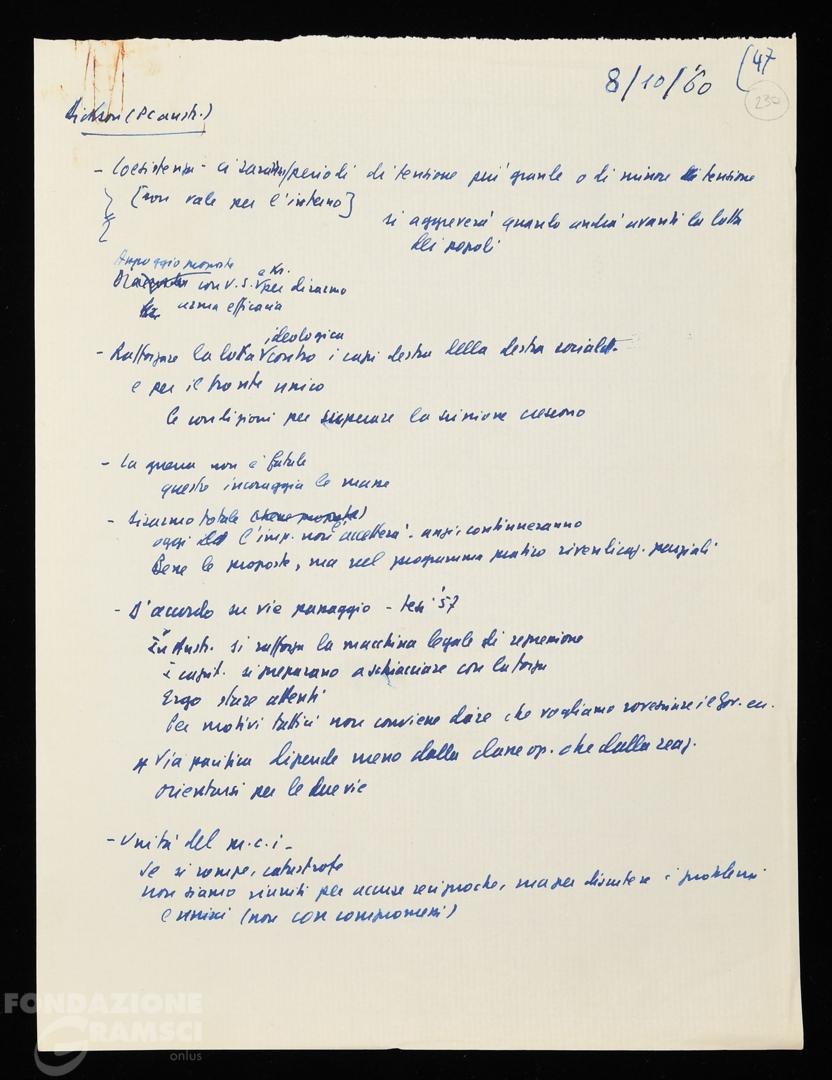 8/10/'60
(47
230
Dickson (PC austr.)
- Coesistenza - ci saranno periodi di tensione più grande o di minore tensione
[non vale per l'interno]
si aggraverà quando andrà avanti la lotta
dei popoli
Appoggio proposte
con U.S. e Kr. per disarmo
arma efficacia
- Rafforzare la lotta ideologica contro i capi destra della destra socialdt.
e per il fronte unico
le condizioni per superare la scissione crescono
- La guerra non è fatale
questo incoraggia le masse
- Disarmo totale (bene proposta)
oggi l'imp. non accetterà - anzi, continueranno
Bene le proposte, ma nel programma pratico rivendicaz. parziali
- D'accordo su vie passaggio - tesi '57
In Austr. si rafforza la macchina legale di repressione
I capit. si preparano a schiacciare con la forza
Ergo stare attenti
Per motivi tattici non conviene dire che vogliamo rovesciare il Gov. ecc.
Via pacifica dipende meno dalla classe op. che dalla reaz.
Orientarsi per le due vie
- Unità del m.c.i. -
Se si rompe, catastrofe
non siamo riuniti per accuse reciproche, ma per discutere i problemi
e unirci (non con compromessi)
FONDAZIONE
GRAMSCI
onlus